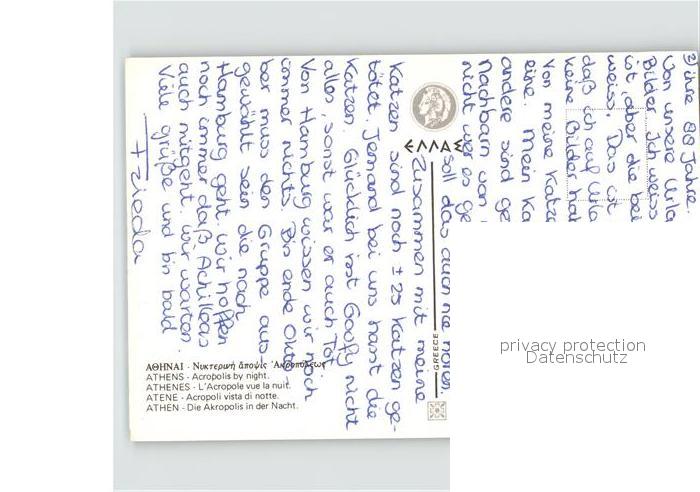 ihre 80 Jahre.
Von unsere Urla
Bilder. Ich weiss
ist, aber die bei
weiss. Das ist
daß ich auf Urla
keine Bilder hat
Von meine Katz
eine. Mein Ka
andere sind ge
Nachbarn von
nicht wer es ge
soll das auch nie hören.
Zusammen mit meine
Katzen sind noch ± 25 Katzen ge-
tötet. Jemand bei uns hasst die
Katzen. Glücklich isst Goofy nicht
alles, sonst war er auch Tot
Von Hamburg wissen wir noch
immer nichts. Bis ende Okto
ber muss den Gruppe aus-
gewählt sein die nach
Hamburg geht. Wir hoffen
noch immer daß Achilleas
auch mitgeht. Wir warten.
Viele grüße und bis bald
Frieda
ΕΛΛΑΣ
GREECE
ΑΘΗΝΑΙ - Νυκτερινή ἄποψις Ἀκροπόλεως
ATHENS - Acropolis by night.
ATHENES - L'Acropole vue la nuit.
ATENE - Acropoli vista di notte.
ATHEN - Die Akropolis in der Nacht.
privacy protection
Datenschutz